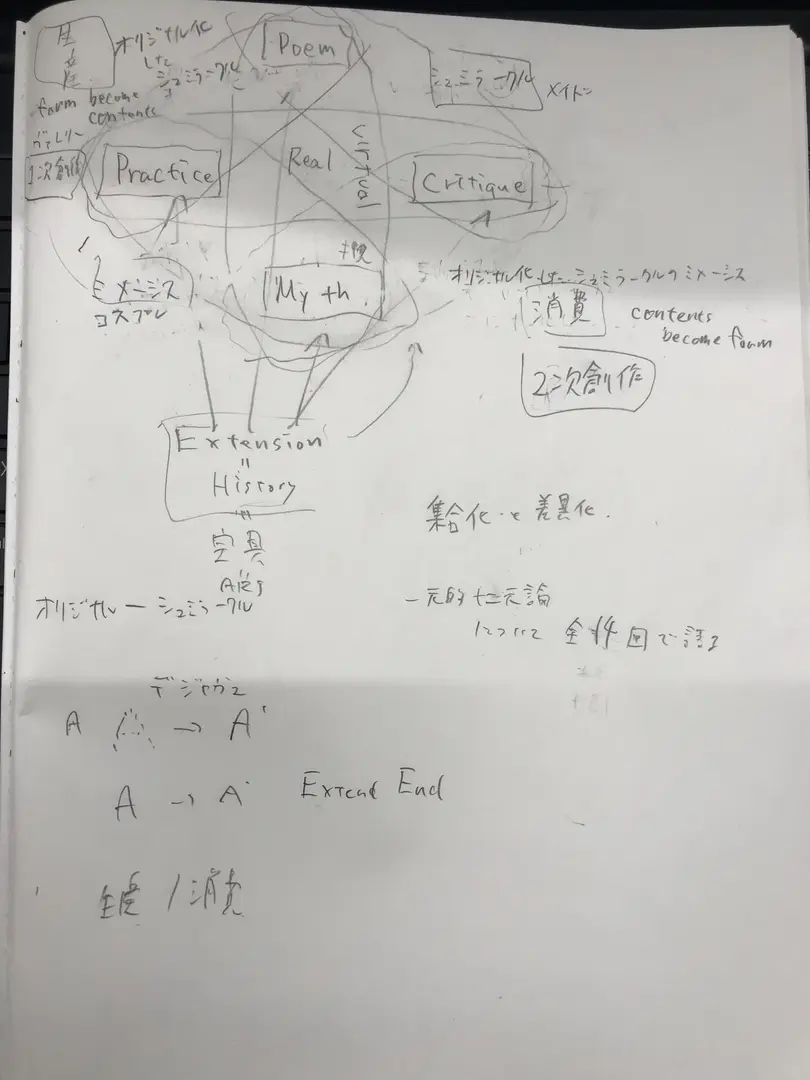 オリジナル化
した
シュミラークル
[Poem]
シュミラークル
form become
contents
1次創作
Practice
Real
Virtual
Critique
ミメーシス
コスプレ
Myth
オリジナル化した シュミラークルのミメーシス
消費
contents
become form
2次創作
Extension
=
History
集合化と差異化.
オリジナル ー シュミラークル
一元的十二元論
について 全14回で語る
デジャヴュ
A → A'
A → A' Extend End
/消費